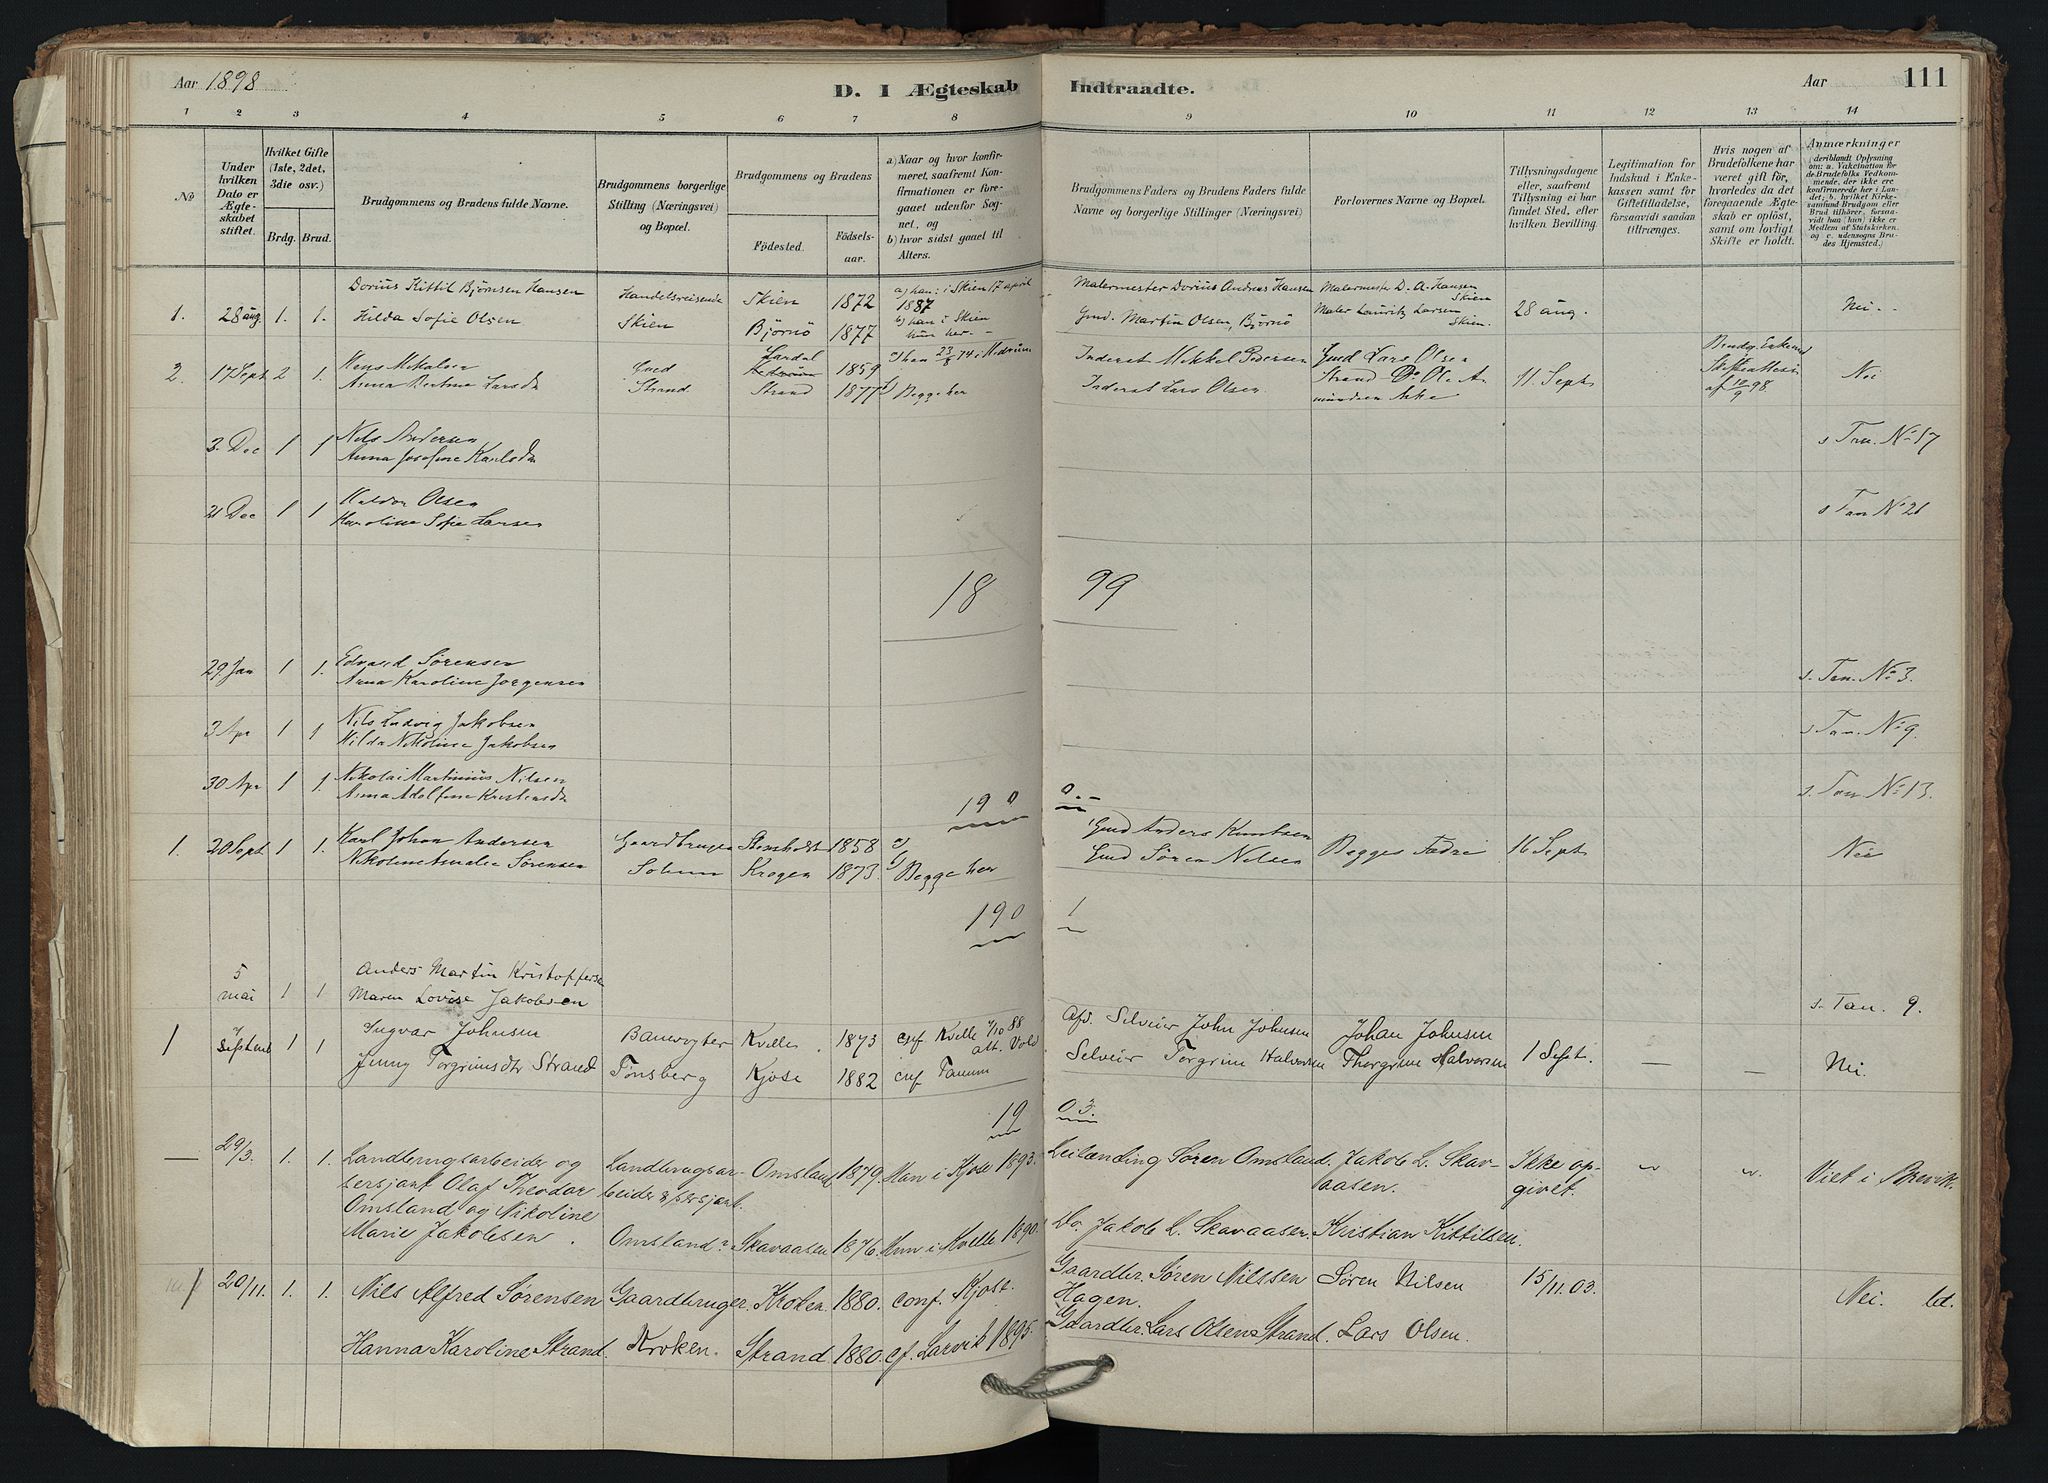 Aar 1898
D. I Ægteskab Indtraadte.
Aar
111
1 2 3 4 5 6 7 8 9 10 11 12 13 14
No
Under hvilken Dato er Ægteskabet stiftet.
Hvilket Gifte (1ste, 2det, 3die osv.)
Brdg. Brud.
Brudgommens og Brudens fulde Navne.
Brudgommens borgerlige Stilling (Næringsvei) og Bopæl.
Brudgommens og Brudens
Fødested.
Fødselsaar.
a) Naar og hvor konfirmeret, saafremt Konfirmationen er foregaaet udenfor Sognet, og
b) hvor sidst gaaet til Alters.
Brudgommens Faders og Brudens Faders fulde Navne og borgerlige Stillinger (Næringsvei)
Forlovernes Navne og Bopæl.
Tillysningsdagene eller, saafremt Tillysning ei har fundet Sted, efter hvilken Bevilling.
Legitimation for Indskud i Enkekassen samt for Giftetilladelse, forsaavidt saadan tiltrænges.
Hvis nogen af Brudefolkene har været gift før, hvorledes da det foregaaende Ægteskab er opløst, samt om lovligt Skifte er holdt.
Anmærkninger
(deriblandt Oplysning om: a. Vakcination for de Brudefolks Vedkommende, der ikke ere konfirmerede her i Landet; b. hvilket Kirkesamfund Brudgom eller Brud tilhører, forsaavidt han (hun) ikke er Medlem af Statskirken, og c. udensogns Brudes Hjemsted.)
1. 28 aug. 1. 1. Dorius Kittil Bjørnsen Hansen Handelsreisende Skien 1872 a) han: i Skien 17 april 1887 Malermester Dorius Andreas Hansen Malermester D. A. Hansen Skien 28 aug. Nei.
Hilda Sofie Olsen Skien Bjørnø 1877 b) han i Skien hun her. Gmd. Martin Olsen, Bjørnø Maler Lauritz Larsen Skien.
2. 17 Sept 2 1. Hans Mikalsen Gmd Lardal 1859 a) han 23/8 74 i Hedrum Inderst Mikkel Pedersen Gmd Lars Olsen Strand 11 Sept Brudg. Enkemd Skifteattest af 12/9 98 Nei
Anna Bertine Larsdr Strand Strand 1877 b) Begge her Inderst Lars Olsen Do Ole Amundsen
3. Dec 1 1 Nils Andersen
Anna Josefine Karlsdr s Tan. No 17
21 Dec 1 1 Haldor Olsen
Karoline Sofie Larsen s Tan No 21
18 99
29. Jan 1 1. Edvard Sørensen
Anna Karoline Jørgensen s. Tan. No 3.
3 Apr 1 1 Nils Ludvig Jakobsen
Hilda Nikoline Jakobsen s Tan. No 9.
30 Apr 1 1. Nikolai Martinius Nilsen
Anna Adolfine Kristensdr s. Tan No 13.
190 0.-
1. 20 Sept 1 1. Karl Johan Andersen Gaardbruger Stensholt 1858 a) Gmd Anders Knutsen Begges Fædre 16 Sept Nei
Nikoline Amalie Sørensen Solum Krogen 1873. b) Begge her Gmd Søren Nilsen
190 1
5 mai 1 1 Anders Martin Kristoffersen
Maren Lovise Jakobsen s. Tan. 9.
1 September 1 1 Ingvar Johnsen Banevogter Kvelle 1873 cnf Kvelle 7/10 88 alt. Vold Afd. Selveier John Johnsen Johan Johnsen 1 Sept. — — Nei.
Jenny Torgrimsdtr Strand Tønsberg Kjose 1882 cnf Tanum Selveir Torgrim Halvorsen Thorgrim Halvorsen
19 03.
— 29/3. 1. 1. Landbrugsarbeider og sersjant Olaf Theodor Omsland og Nikoline Marie Jakobsen.
Landbrugsarbeider & sersjant. Omsland 1879. Han i Kjose 1893. Leilænding Søren Omsland. Jakob L. Skavaasen. Ikke opgivet. " " Viet i Brevik.
Omsland? Skavaasen 1876. Hun i Kvelle 1890. Do. Jakob L. Skavaasen. Kristian Kittilsen.
1 20/11. 1. 1. Nils Alfred Sørensen Gaardbruger. Kroken. 1880. conf. Kjose. Gaardbr. Søren Nilssen Hagen. Søren Nilsen 15/11. 03. Nei.
Hanna Karoline Strand. Kroken. Strand. 1880. cf. Larvik 1895. Gaardbr. Lars Olsen Strand. Lars Olsen.